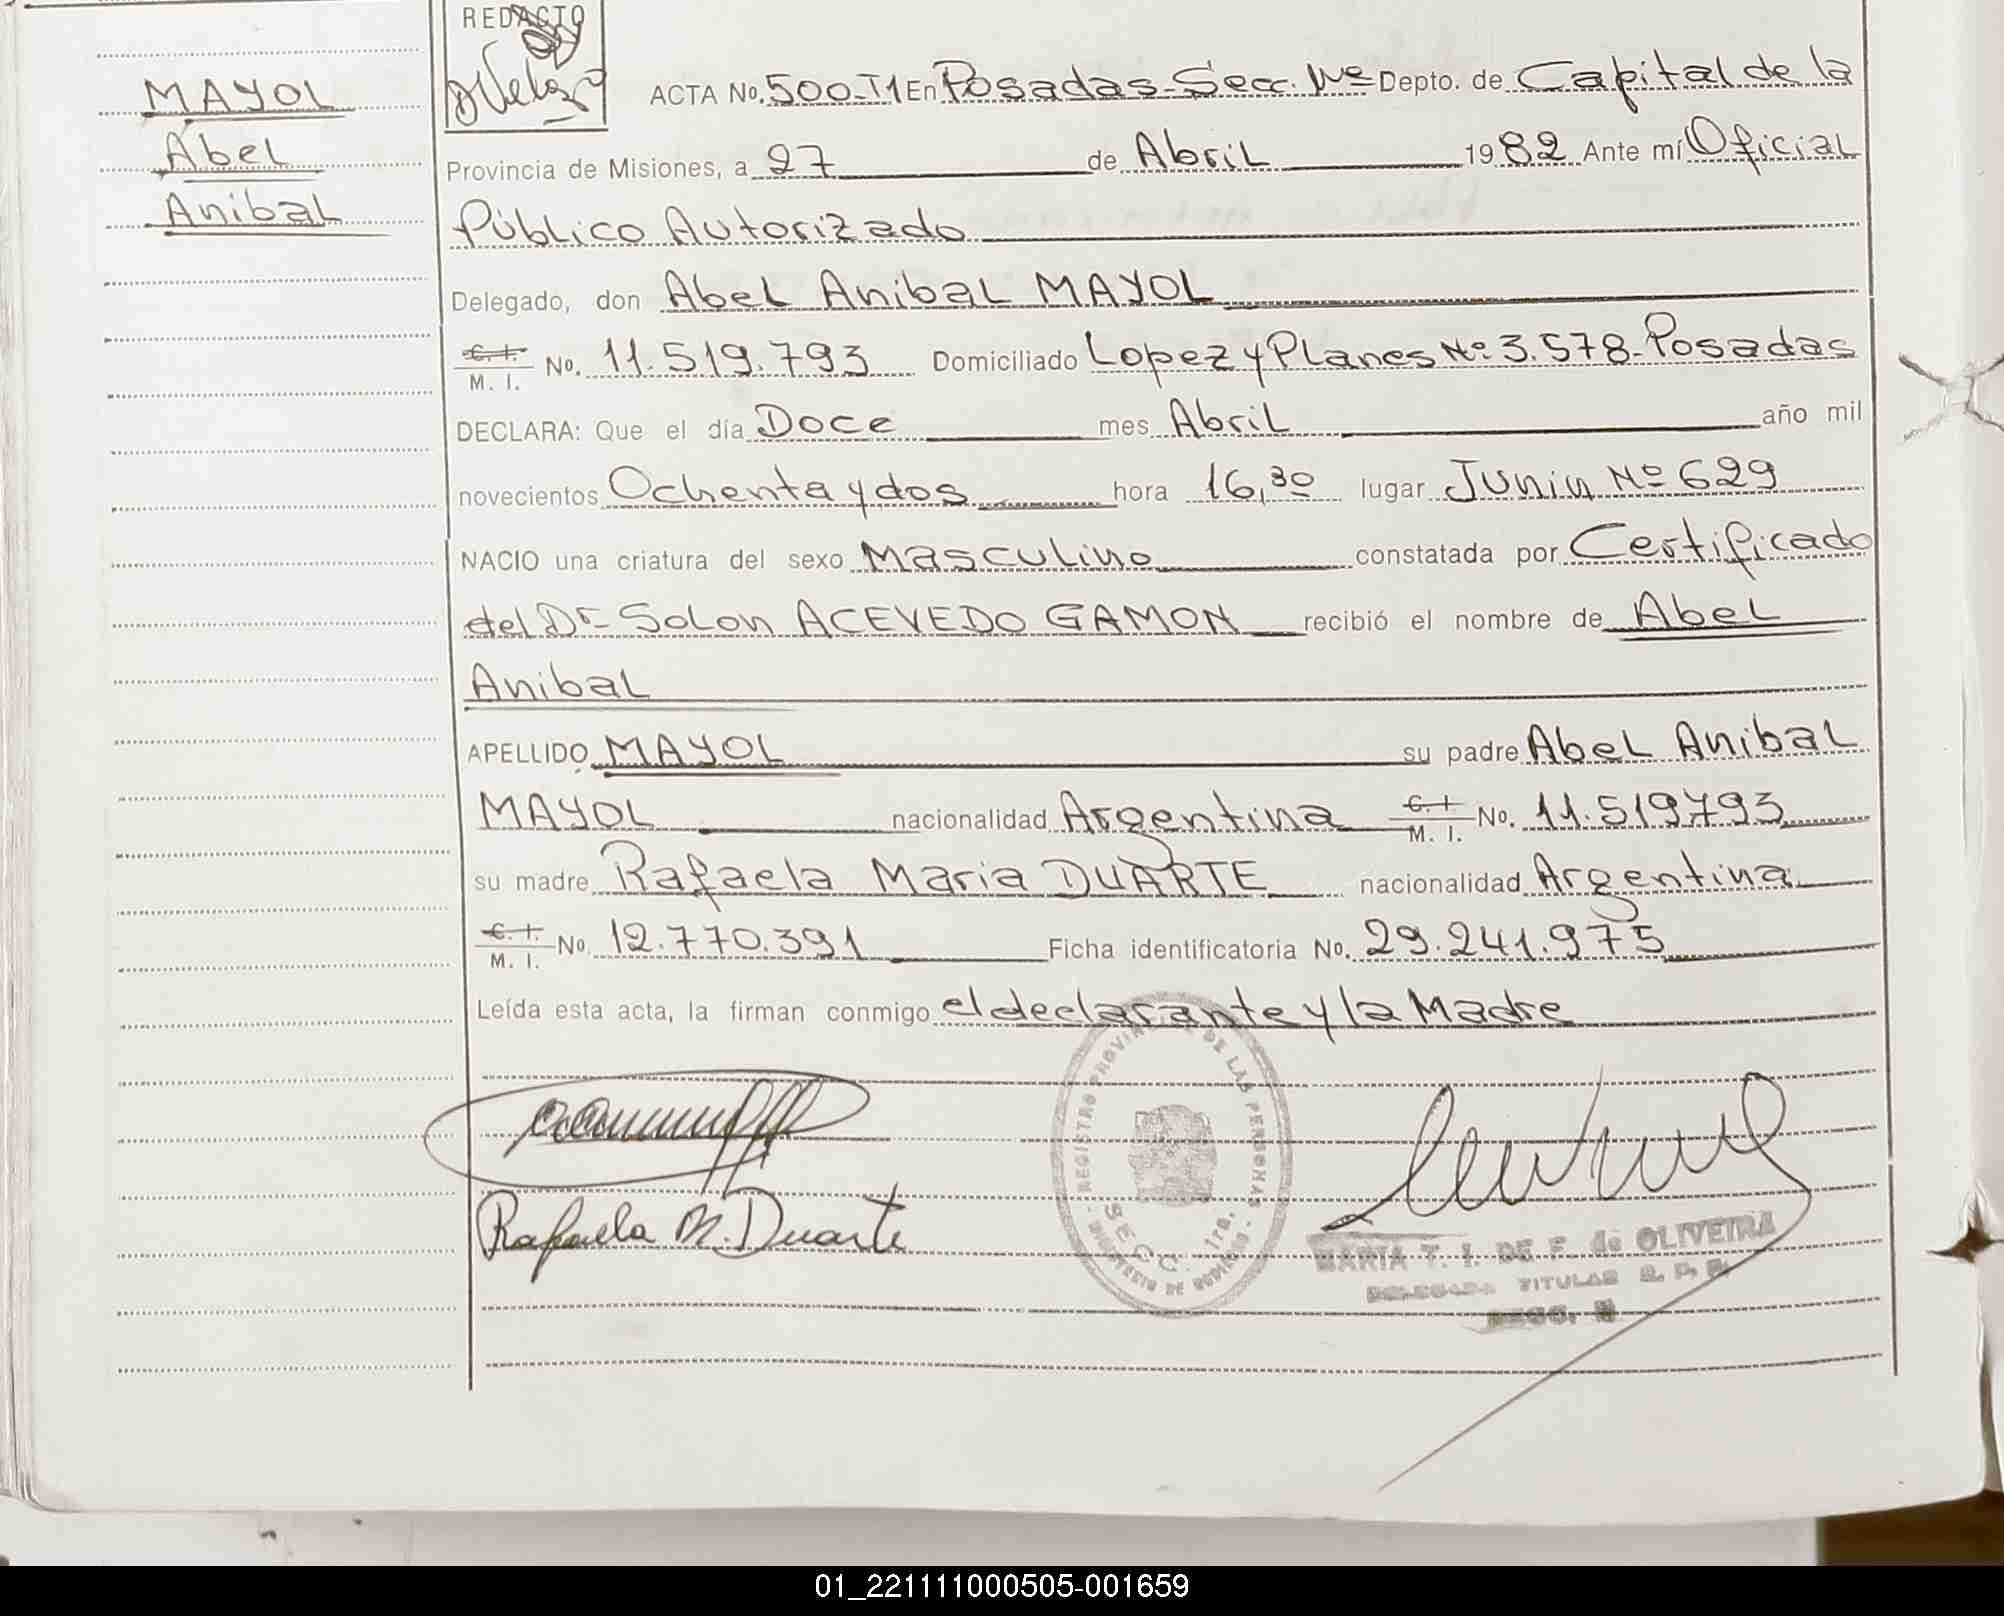 MAYOL
Abel
Anibal
REDACTO
ACTA No. 500-T1 En Posadas-Secc. 1ra Depto. de Capital de la
Provincia de Misiones, a 27 de Abril 1982 Ante mí Oficial
Público Autorizado
Delegado, don Abel Anibal MAYOL
C. I. / M. I. No. 11.519.793 Domiciliado Lopez y Planes Nº 3.578-Posadas
DECLARA: Que el día Doce mes Abril año mil
novecientos Ochenta y dos hora 16,30 lugar Junin Nº 629
NACIO una criatura del sexo Masculino constatada por Certificado
del Dr- Solon ACEVEDO GAMON recibió el nombre de Abel
Anibal
APELLIDO MAYOL su padre Abel Anibal
MAYOL nacionalidad Argentina C. I. / M. I. No. 11.519793
su madre Rafaela Maria DUARTE nacionalidad Argentina
C. I. / M. I. No. 12.770.391 Ficha identificatoria No. 29.241.975
Leída esta acta, la firman conmigo el declarante y la Madre
REGISTRO PROVINCIAL DE LAS PERSONAS
SECC. 1ra.
Rafaela M. Duarte
MARIA T. I. DE F. de OLIVEIRA
DELEGADA TITULAR R. P. P.
01_221111000505-001659